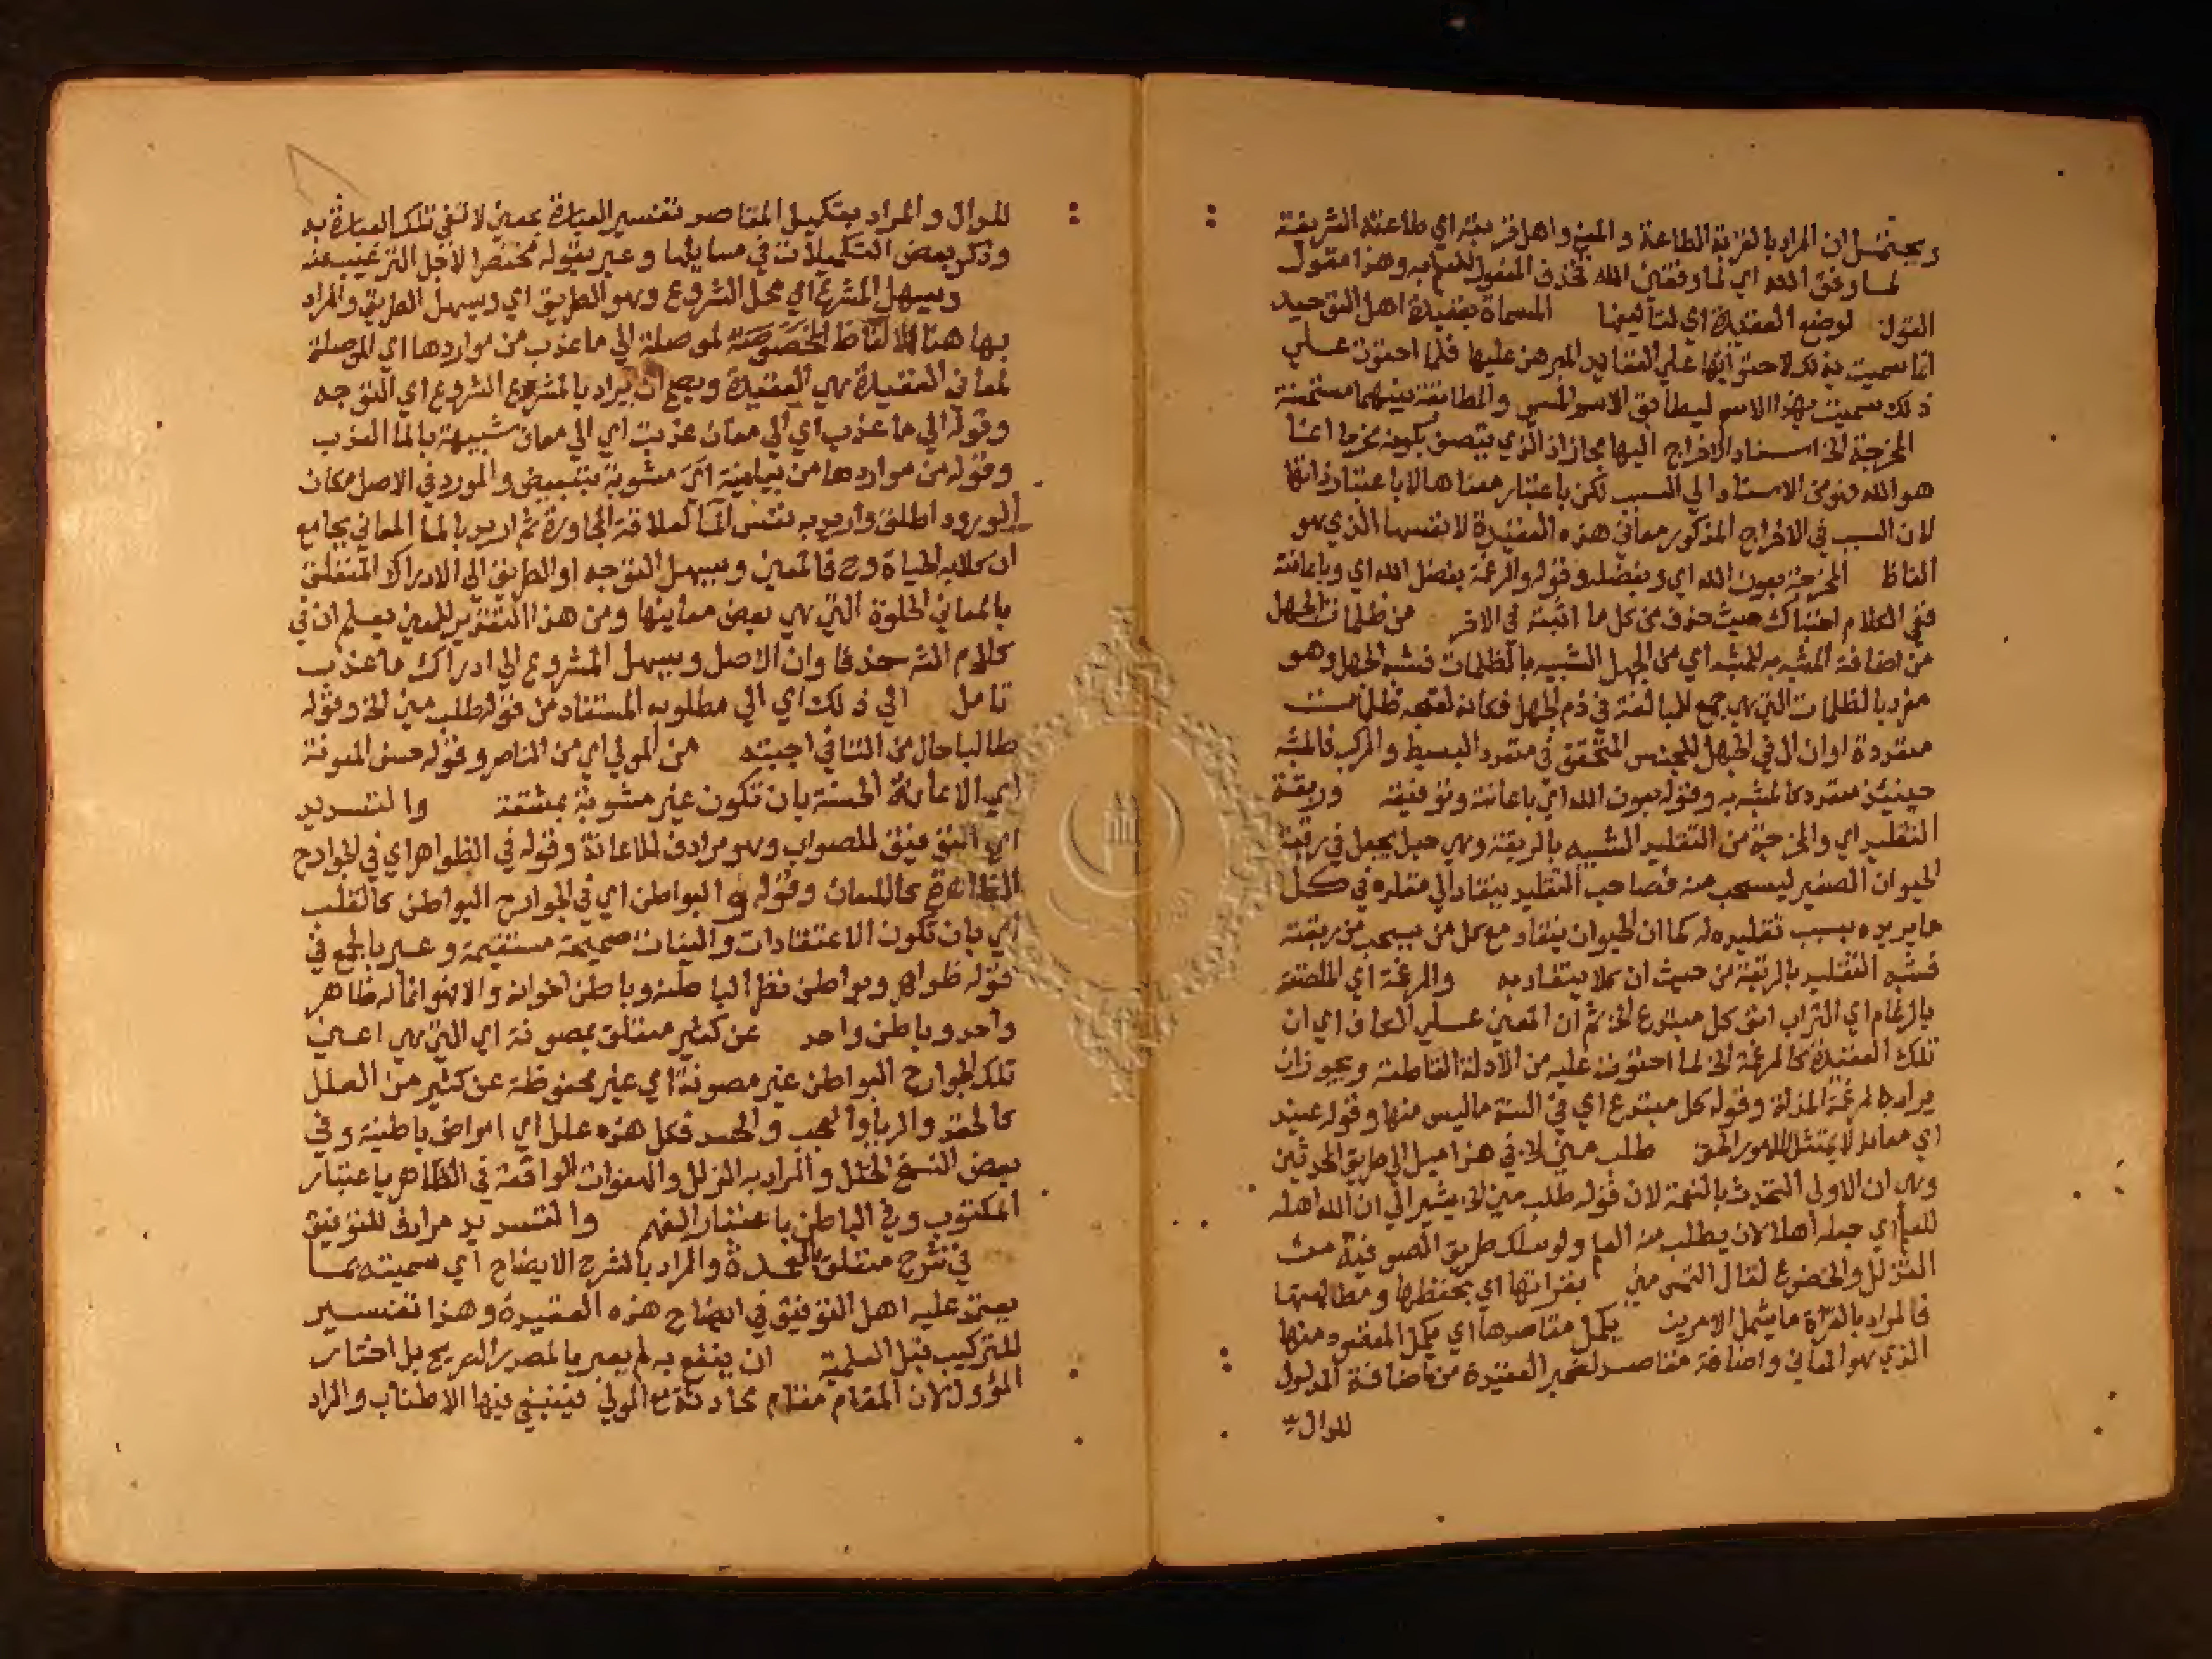 ويحتمل ان المراد بالقربة الطاعة والمعني واهل قربته اي طاعته الشريفة
لما وفق الله اي لما وفقني الله فحذف المفعول للعلم به وهذا مقول
القول لوضع العقيدة اي لتاليفها المسماة بعقيدة اهل التوحيد
انما سميت بذلك لاحتوائها علي العقايد المبرهن عليها فلما احتوت علي
ذلك سميت بهذا الاسم ليطابق الاسم المسمي والمطابقة بينهما مستحسنة
المخرجة الخ اسناد الاخراج اليها مجاز اذ الذي يتصف بكونه مخرجا انما
هو الله فهو من الاسناد الي السبب لكن باعتبار معناها لا باعتبار ذاتها
لان السبب في الاخراج المذكور معاني هذه العقيدة لا نفسها الذي هو
الفاظ المخرجة بعون الله اي وبفضله وقوله والمرغمة بفضل الله اي وباعانته
ففي الكلام احتباك حيث حذف من كل ما اثبته في الاخر من ظلمات الجهل
من اضافة المشبه به للمشبه اي من الجهل الشبيه بالظلمات فشبه الجهل وهو
مفرد بالظلمات التي هي جمع للمبالغة في ذم الجهل فكانه لقبحه ظلمات
متعددة او ان ال في الجهل للجنس المتحقق في متعدد البسيط والمركب فالمشبه
حينئذ متعدد كالمشبه به وقوله بعون الله اي باعانته وتوفيقه وربقة
التقليد اي والمخرجة من التقليد الشبيه بالربقة وهي حبل يجعل في رقبة
الحيوان الصغير ليسحب منه فصاحب التقليد ينقاد الي مقلده في كل
ما يريده بسبب تقليده له كما ان الحيوان ينقاد مع كل من يسحبه من ربقته
فشبه التقليد بالربقة من حيث ان كلا ينقاد به والمرغمة اي الملصقة
بالرغام اي التراب انف كل مبتدع الخ ثم ان المعني علي الكاف اي ان
تلك العقيدة كالمرغمة الخ لما احتوت عليه من الادلة القاطعة ويجوز ان
يراد بالمرغمة المذلة وقوله كل مبتدع اي في السنة ما ليس منها وقوله عنيد
اي معاند لا يمتثل للامور الحق طلب مني الخ في هذا ميل الي طريق المحدثين
وهي ان الاولي التحدث بالنعمة لان قوله طلب مني الخ يشير الي ان الله اهله
للعلم اي جعله اهلا لان يطلب منه العلم ولو سلك طريق الصوفية من
التذلل والخضوع لقال التمس مني بقراتها اي بحفظها ومطالعتها
فالمراد بالقراة ما يشمل الامرين يكمل مقاصدها اي يكمل المقصود منها
الذي هو المعاني واضافة مقاصد لضمير العقيدة من اضافة المدلول
للدال
للدال والمراد بتكميل المقاصد تفسير العبارة بمعني لا تفي تلك العبارة به
وذكر بعض التكميلات في مسايلها وعبر بقوله مختصرا لاجل الترغيب عنه
ويسهل المشرع اي محل الشروع وهو الطريق اي ويسهل الطريق والمراد
بها هنا الالفاظ المخصوصة لموصلة الي ما عذب من مواردها اي الموصلة
لمعاني العقيدة هي العقيدة ويصح ان يراد بالمشرع الشروع اي التوجه
وقوله الي ما عذب اي الي معان عذبت اي الي معان شبيهة بالما العذب
وقوله من مواردها من بيانية اي مشوبة بتبعيض والمورد في الاصل مكان
الورود اطلق واريد به نفس الما لعلاقة المجاورة ثم اريد بالما المعاني بجامع
ان كلا به الحياة وح فالمعني ويسهل التوجه او الطريق الي الادراك المتعلق
بالمعاني الحلوة التي هي بعض معانيها ومن هذا التقرير للمعني يعلم ان في
كلام الشـ حذفا وان الاصل ويسهل المشروع الي ادراك ما عذب
تامل الي ذلك اي الي مطلوبه المستفاد من قوله طلب مني الخ وقوله
طالبا حال من التا في اجبته من المولي اي من الناصر وقوله حسن المعونة
اي الاعانة الحسنة بان تكون غير مشوبة بمشقة والتسديد
اي التوفيق للصواب وهو مرادف للاعانة وقوله في الظواهر اي في الجوارح
الظاهرة كاللسان وقوله والبواطن اي في الجوارح البواطن كالقلب
اي بان تكون الاعتقادات والنيات صحيحة مستقيمة وعبر بالجمع في
قوله ظواهر وبواطن نظرا لباطنه وباطن اخوانه والا فهو انما له ظاهر
واحد وباطن واحد عن كثير متعلق بمصونة اي التي هي اعني
تلك الجوارح البواطن غير مصونة اي غير محفوظة عن كثير من العلل
كالحقد والريا والعجب والحسد فكل هذه علل اي امراض باطنية وفي
بعض النسخ الخلل والمراد به الزلل والهفوات الواقعة في الظاهر باعتبار
المكتوب وفي الباطن باعتبار الفهم والتسديد مرادف للتوفيق
في شرح متعلق بالعمدة والمراد بالشرح الايضاح اي سميته بما
يعتمد عليه اهل التوفيق في ايضاح هذه العقيدة وهذا تفسير
للتركيب قبل العلمية ان ينفع به لم يعبر بالمصدر الصريح بل اختار
المؤول لان المقام مقام محادثة مع المولي فينبغي فيها الاطناب والمراد